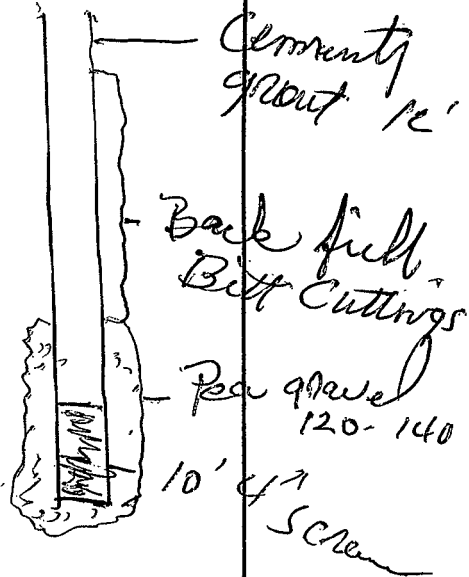 Cement
grout
Back fill
Bit Cuttings
Pea gravel
120-140
10' 4"
Screen